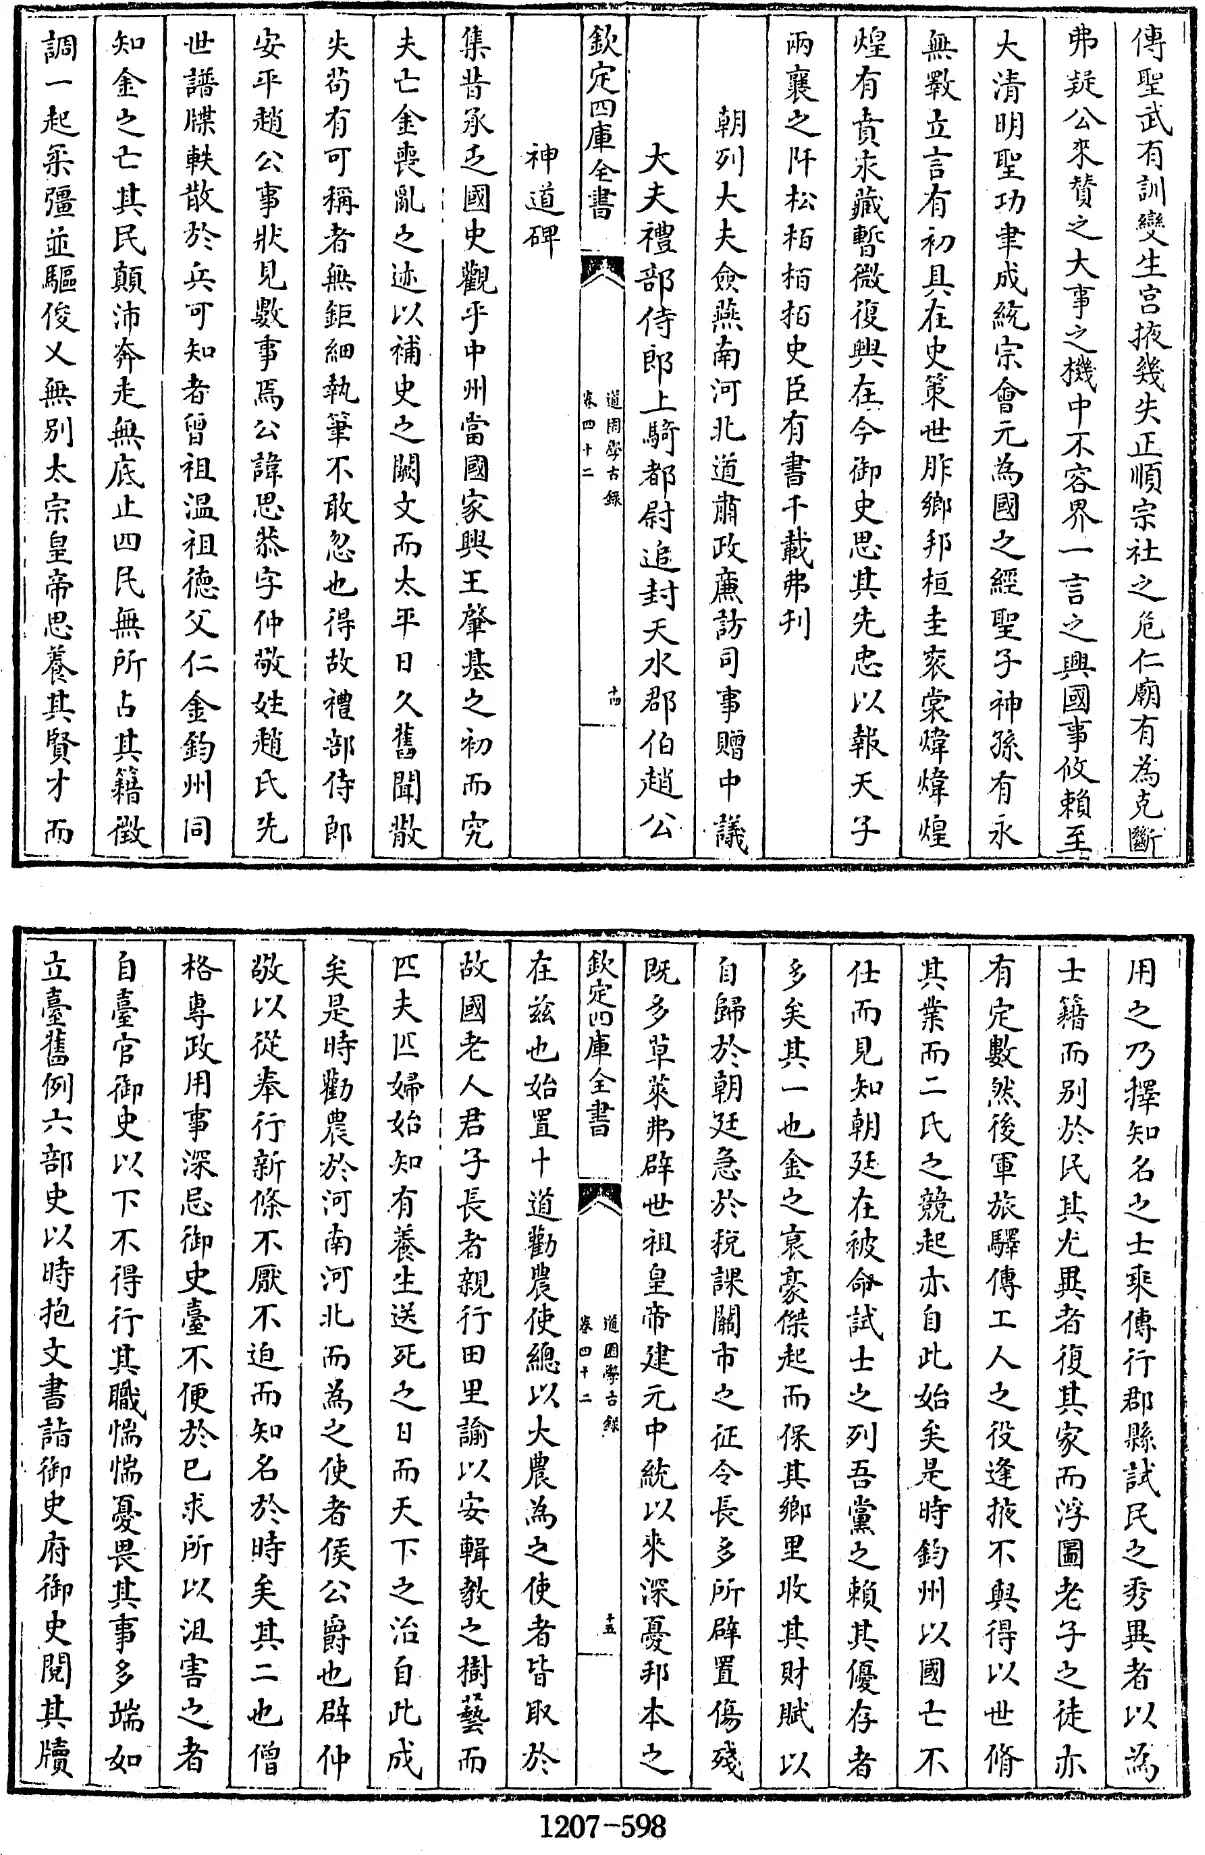 傳聖武有訓變生宫掖幾失正順宗社之危仁廟有為克斷
弗疑公來賛之大事之機中不容界一言之興國事攸賴至
大清明聖功聿成統宗會元為國之經聖子神孫有永
無斁立言有初具在史策世胙鄉邦桓圭衮裳煒煒煌
煌有賁永藏暫微復興在今御史思其先忠以報天子
兩襄之阡松栢栢栢史臣有書千載弗刋
朝列大夫僉燕南河北道肅政亷訪司事贈中議
大夫禮部侍郎上騎都尉追封天水郡伯趙公
欽定四庫全書
道園學古錄
卷四十二
十四
神道碑
集昔承乏國史觀乎中州當國家興王肇基之初而究
夫亡金喪亂之迹以補史之闕文而太平日久舊聞散
失茍有可稱者無鉅細執筆不敢忽也得故禮部侍郎
安平趙公事狀見數事焉公諱思恭字仲敬姓趙氏先
世譜牒軼散於兵可知者曾祖温祖德父仁金鈞州同
知金之亡其民顛沛奔走無底止四民無所占其籍徴
調一起柔彊並驅俊乂無别太宗皇帝思養其賢才而
用之乃擇知名之士乘傳行郡縣試民之秀異者以為
士籍而别於民其尤異者復其家而浮圖老子之徒亦
有定數然後軍旅驛傳工人之役逢掖不與得以世脩
其業而二氏之競起亦自此始矣是時鈞州以國亡不
仕而見知朝廷在被命試士之列吾黨之賴其優存者
多矣其一也金之衰豪傑起而保其鄉里收其財賦以
自歸於朝廷急於税課關市之征令長多所辟置傷殘
既多草萊弗辟世祖皇帝建元中統以來深憂邦本之
欽定四庫全書
道園學古錄
卷四十二
十五
在兹也始置十道勸農使總以大農為之使者皆取於
故國老人君子長者親行田里諭以安輯教之樹藝而
匹夫匹婦始知有養生送死之日而天下之治自此成
矣是時勸農於河南河北而為之使者侯公爵也辟仲
敬以從奉行新條不厭不迫而知名於時矣其二也僧
格專政用事深忌御史臺不便於已求所以沮害之者
自臺官御史以下不得行其職惴惴憂畏其事多端如
立臺舊例六部史以時抱文書詣御史府御史閱其牘
1207-598